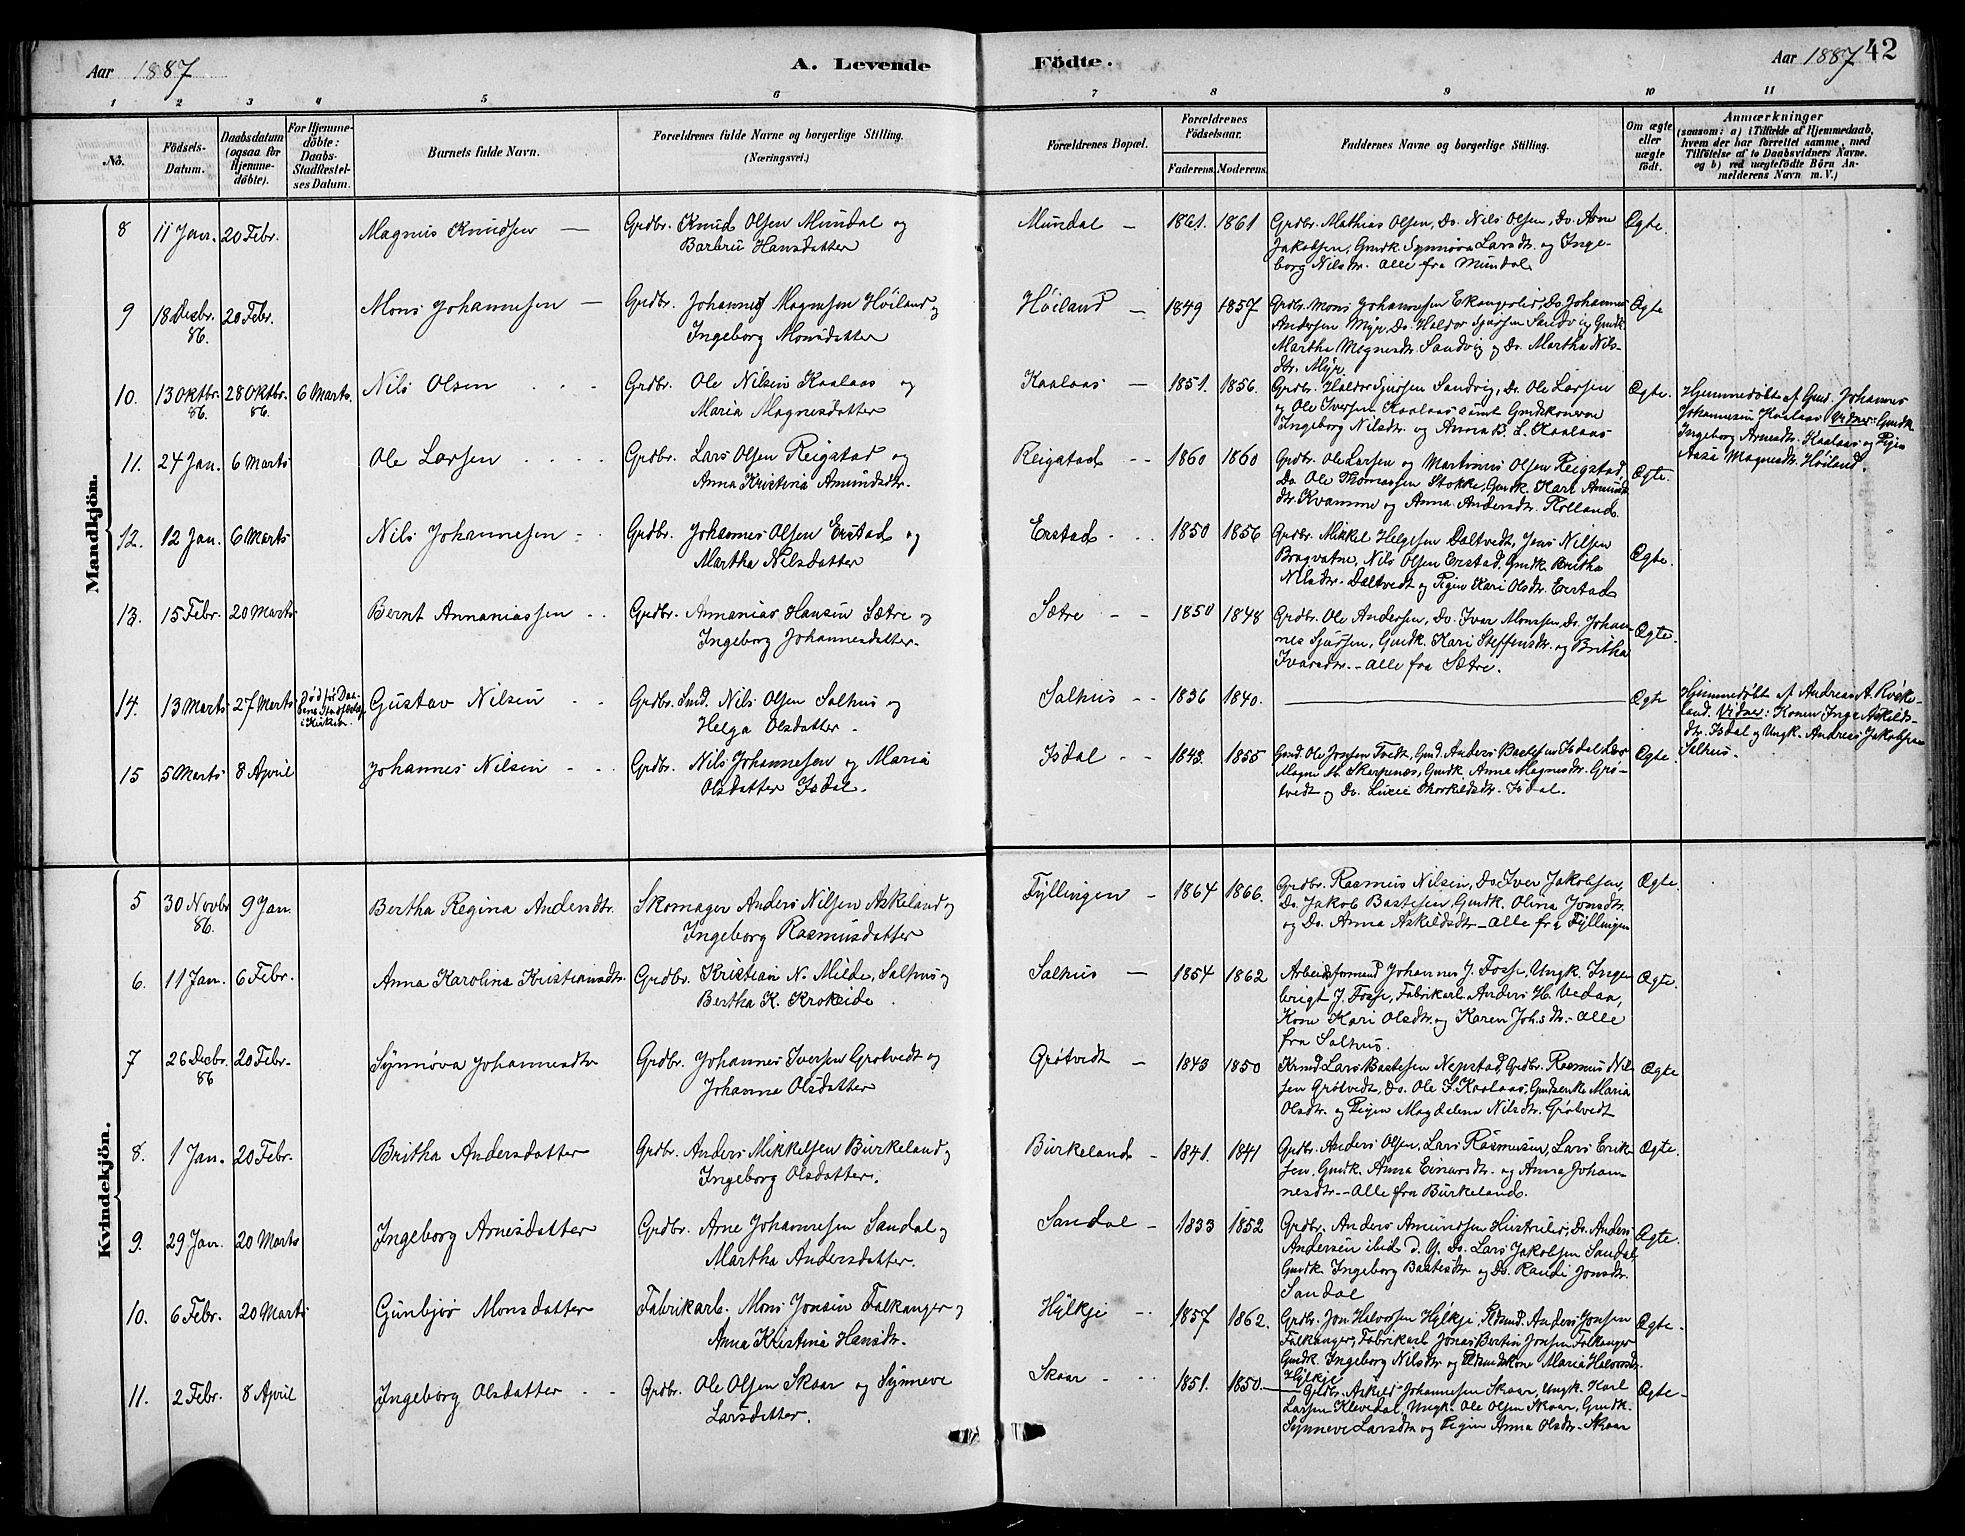 Aar 1887 A. Levende Födte. Aar 1887 42
1 2 3 4 5 6 7 8 9 10 11
No.
Födsels-Datum.
Daabsdatum (ogsaa for Hjemmedöbte).
For Hjemmedöbte: Daabs-Stadfæstelses Datum.
Barnets fulde Navn.
Forældrenes fulde Navne og borgerlige Stilling. (Næringsvei.)
Forældrenes Bopæl.
Forældrenes Födselsaar.
Faderens. Moderens.
Faddernes Navne og borgerlige Stilling.
Om ægte eller uægte födt.
Anmærkninger
(saasom: a) i Tilfælde af Hjemmedaab, hvem der har forrettet samme, med Tilföielse af to Daabsvidners Navne. og b) ved uægtefödte Börn Anmelderens Navn m. V.)
Mandkjön.
8 11 Jan. 20 Febr. Magnus Knudsen — Grdbr. Knud Olsen Mundal og
Barbru Hansdatter
Mundal — 1861. 1861 Grdbr. Mathias Olsen, Do. Nils Olsen, Do. Arne
Jakobsen, Gmdk Synnøva Larsdtr. og Inge-
borg Nilsdtr. alle fra Mundal
Ægte.
9 18 Decbr. 86. 20 Febr. Mons Johannesen — Grdbr. Johannes Magnesen Höiland og
Ingeborg Monsdatter
Höiland — 1849 1857 Grdbr. Mons Johannesen Ekangerlid, Do. Johannes
Andersen Myr, Do. Haldor Sjursen Sandvig Gmdk.
Martha Magnesdtr. Sandvig og Do. Martha Nils-
dtr. Myr.
Ægte
10. 13 Oktbr. 86. 28 Oktbr. 86. 6 Marts. Nils Olsen . . . Grdbr. Ole Nilsen Kaalaas og
Maria Magnesdatter
Kaalaas — 1851. 1856. Grdbr. Haldor Sjursen Sandvig, Do. Ole Larsen
og Ole Iversen Kaalaas samt Gmdskonerne
Ingeborg Nilsdtr. og Anna B. L. Kaalaas
Ægte.
Hjemmedöbt af Gmd. Johannes
Johannesen Kaalaas Vidner: Gmdk
Ingeborg Arnesdtr. Kaalaas og Pigen
Aasa Magnesdtr. Höiland.
11. 24 Jan. 6 Marts Ole Larsen . . . . Grdbr. Lars Olsen Reigstad og
Anna Kristina Amundsdtr.
Reigstad -- 1860 1860 Grdbr. Ole Larsen og Martinus Olsen Reigstad,
Do Ole Thomassen Stokke, Gmdk. Kari Amunds-
dtr. Kvamme og Anna Andersdtr. Rolland.
Ægte.
12. 12 Jan. 6 Marts Nils Johannesen - . Grdbr. Johannes Olsen Erstad og
Martha Nilsdatter
Erstad - . . 1850 1856 Grdbr. Mikkel Helgesen Daltvedt, Jens Nilsen
Bragvatne, Nils Olsen Erstad, Gmdk Britha
Nilsdtr. Daltvedt og Pigen Kari Olsdtr. Erstad
Ægte.
13. 15 Febr. 20 Marts Bernt Annaniassen . . Grdbr. Annanias Hansen Sætre og
Ingeborg Johannesdatter.
Sætre - - 1850 1848 Grdbr. Ole Andersen, Do. Ivar Monssen, Do. Johan-
nes Sjursen, Gmdk. Kari Steffensdtr. og Britha
Ivarsdtr. — alle fra Sætre.
Ægte.
14. 13 Marts 27 Marts Död før Daa-
bens Stadfæstelse
i Kirken.
Gustav Nilsen . . Grdbr. Smd. Nils Olsen Salhus og
Helga Olsdatter -
Salhus -- 1836 1840. ———
Ægte
Hjemmedöbt af Andreas A. Röske-
land. Vidner: Konen Inga Askilds-
dtr. Isdal og Ungk. Andreas Jakobsen
Salhus.
15 5 Marts 8 April Johannes Nilsen . . Grdbr. Nils Johannesen og Maria
Olsdatter Isdal.
Isdal - - 1848. 1855 Gmd. Ole Josefsen Tvedt, Gmd. Anders Bastesen Isdal
Magne M. Skarpenæs, Gmdk. Anna Magnesdtr. Grö-
tvedt og Do. Lucie Thorkildsdtr. Isdal.
Ægte.
Kvindekjön.
5 30 Novbr 86. 9 Jan. Bertha Regina Andersdtr. Skomager Anders Nilsen Askeland og
Ingeborg Rasmusdatter
Fyllingen - 1864 1866. Grdbr. Rasmus Nilsen, Do Iver Jakobsen,
Do. Jakob Bastesen, Gmdk. Olina Jonsdtr.
og Do. Anna Askildsdtr. — alle fra Fyllingen
Ægte.
6. 11 Jan. 6 Febr. Anna Karolina Kristiansdtr. Grdbr. Kristian N. Milde, Salhus og
Bertha K. Krokeide .
Salhus — 1854 1862 Arbeidsformand Johannes J. Fosse, Ungk. Inge-
brigt J. Fosse, Fabrikarb. Anders H. Vedaa,
Kone Kari Olsdtr. og Karen Johsdtr. - alle
fra Salhus.
Ægte.
7 26 Decbr. 86 20 Febr. Synnöva Johannesdtr Grdbr. Johannes Iversen Grötvedt og
Johanne Olsdatter
Grötvedt — 1843 1850 Krmd. Lars Bastesen Nepstad, Grdbr. Rasmus Nil-
sen Grötvedt, Do. Ole I. Kaalaas, Gmdsenke Maria
Olsdtr. og Pigen Magdelena Nilsdtr. Grötvedt
Ægte
8. 1 Jan. 20 Febr. Britha Andersdatter Grdbr. Anders Mikkelsen Burkeland og
Ingeborg Olsdatter.
Burkeland - 1841. 1841 Grdbr. Anders Olsen, Lars Rasmussen, Lars Erik-
sen. Gmdk. Anna Einarsdtr. og Anna Johan-
nesdtr. — alle fra Burkeland.
Ægte.
9. 29 Jan. 20 Marts Ingeborg Arnesdatter Grdbr. Arne Johannesen Sandal og
Martha Andersdatter.
Sandal - 1833 1852 Grdbr. Anders Amundsen Hustruled, Do. Anders
Andersen ibid d. y. Do. Lars Jakobsen Sandal,
Gmdk. Ingeborg Bastesdtr og Do. Randi Jonsdtr.
Sandal
Ægte.
10. 6 Febr. 20 Marts Gunbjör Monsdatter Fabrikarb. Mons Jonsen Falkanger og
Anna Kristina Hansdtr.
Hylkje -- 1857 1862. Grdbr. Jon Halvorsen Hylkje, Anders Jonsen
Falkanger, Fabrikarb Jonas Bertin Jonsen Falkanger
Gmdk. Ingeborg Nilsdtr og Maria Halvorsdtr.
Hylkje
Ægte.
11. 2 Febr. 8 April Ingeborg Olsdatter - - Grdbr. Ole Olsen Skaar og Synneve
Larsdatter.
Skaar - . . 1851. 1850. — Grdbr. Askild Johannesen Skaar, Ungk. Karl
Larsen Klevedal, Ungk. Ole Olsen Skaar, Gmdk.
Synneve Larsdtr og Pigen Anna Olsdtr. Skaar
Ægte.